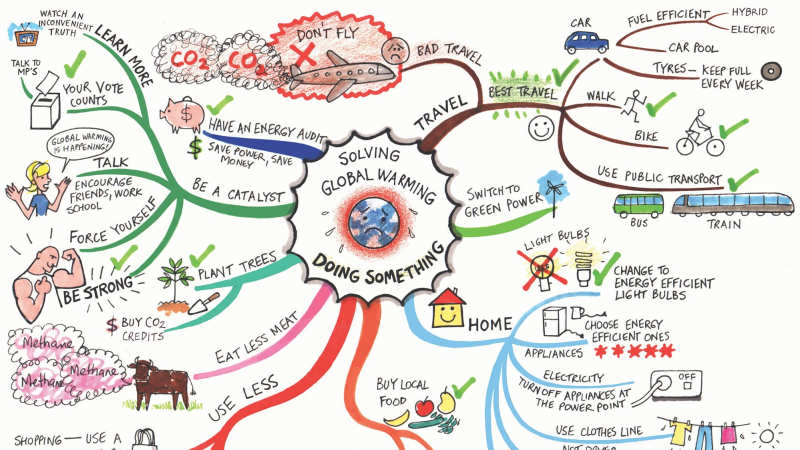 WATCH AN
INCONVENIENT
TRUTH
LEARN MORE
TALK TO
MP'S
YOUR VOTE
COUNTS
GLOBAL WARMING
IS HAPPENING!
TALK
ENCOURAGE
FRIENDS, WORK
SCHOOL
FORCE YOURSELF
BE STRONG
BE A CATALYST
CO2
CO2
DON'T
FLY
BAD TRAVEL
TRAVEL
BEST TRAVEL
CAR
FUEL EFFICIENT
HYBRID
ELECTRIC
CAR POOL
TYRES — KEEP FULL
EVERY WEEK
WALK
BIKE
USE PUBLIC TRANSPORT
BUS
TRAIN
$
HAVE AN ENERGY AUDIT
$ SAVE POWER, SAVE
MONEY
SOLVING
GLOBAL WARMING
DOING SOMETHING
SWITCH TO
GREEN POWER
PLANT TREES
$ BUY CO2
CREDITS
EAT LESS MEAT
Methane
Methane
Methane
USE LESS
SHOPPING — USE A
BUY LOCAL
FOOD
HOME
LIGHT BULBS
CHANGE TO
ENERGY EFFICIENT
LIGHT BULBS
CHOOSE ENERGY
EFFICIENT ONES
APPLIANCES
ELECTRICITY
TURN OFF APPLIANCES AT
THE POWER POINT
OFF
USE CLOTHES LINE
NOT DRYER